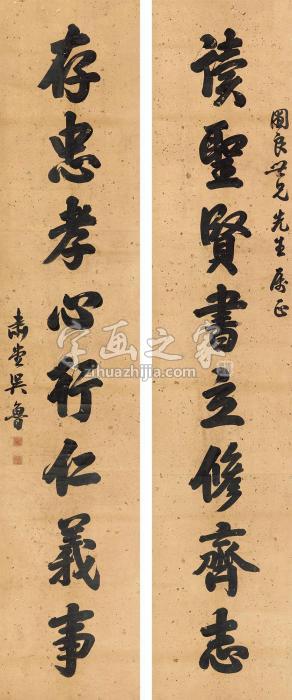 國良世兄先生屬正
讀聖賢書立修齊志
存忠孝心行仁義事
肅堂吳魯
字画之家
zihuazhijia.com